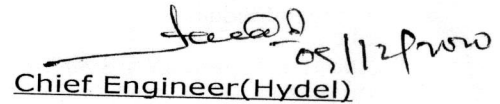 09/12/2020
Chief Engineer(Hydel)